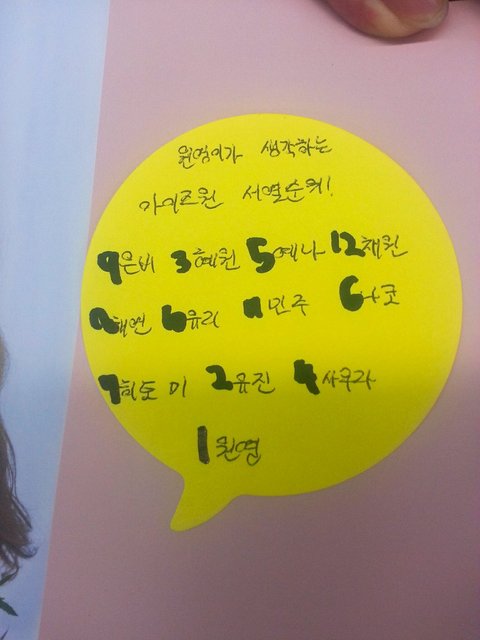 원영이가 생각하는
아이즈원 서열순위!
9은비 3혜원 5예나 12채원
채연 유리 민주 6나코
7히토미 2유진 4사쿠라
1원영